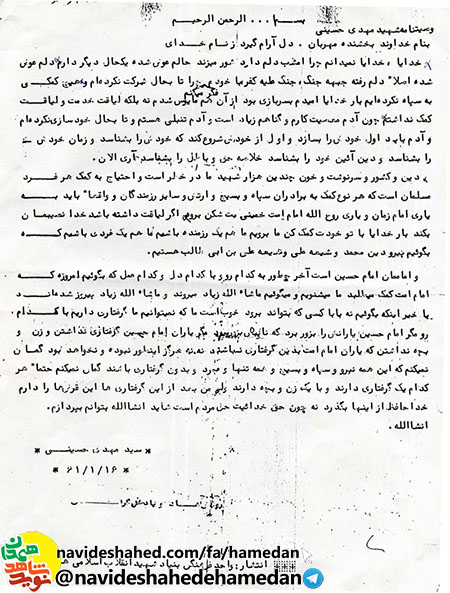 بســـم ... الرحمن الرحیـــم
وصیتنامه شهید مهدی حسینی
بنام خداوند بخشنده مهربان . دل آرام گیرد ز نام خدای
خدایا ، خدایا نمیدانم چرا امشب دلم دارد شور میزند حالم عوض شده یکحال دیگر دارم دلم عوض
شده اصلا" دلم رفته جبهه جنگ، جنگ علیه کفر اما خودم تا بحال شرکت نکرده‌ام و کمکی
به سپاه نکرده‌ایم بار خدایا امیدم بسربازی بود از آن هم مایوس شدم نه بلکه لیاقت خدمت و لیاقت
کمک نداشتم چون آدم معصیت کارم و گناهم زیاد است و آدم تنبلی هستم و تا بحال خودسازی نکرده‌ام
و آدم باید اول خودش را بسازد و اول از خودش شروع کند که خودش را بشناسد و زمان خودش
را بشناسد و دین آئین خود را بشناسد خلاصه حق و باطل را بشناسد آری الان
دین و کشور و سرنوشت و خون چندین هزار شهید ما در خطر است و احتیاج به کمک هر فرد
مسلمان است که هر نوع کمک به برادران سپاه و بسیج و ارتش و سایر رزمندگان و واقعا" باید به
یاری امام زمان و یاری روح الله امام امت خمینی بت شکن برویم اگر لیاقت داشته باشد خدا نصیبمان
بکند بار خدایا با تو خودت کمک کن ما برویم ما هم یک رزمنده باشیم ما هم یک فردی باشیم که
بگوئیم پیرو دین محمد و شیعه علی و شیعه علی بن ابی طالب هستیم .
و امامان امام حسین است آخر چطور به کدام روی با کدام دل و کدام عمل که بگوئیم امروزه که
امام امت کمک میطلبد ما میشنویم و میگوئیم ماشاء الله زیاد میروند و ماشاء الله زیاد پیروز شده‌اند
یا خیر اینکه بگوئیم نه بابا کسی که بتواند برود خوب است ما که نمیتوانیم ما گرفتاری داریم با کدام
رو مگر امام حسین یارانش را بزور برد که مگر یاران امام حسین گرفتاری نداشتن و زن و
بچه نداشتن که یاران امام امت بدین گرفتاری نباشند نه نه هرگز اینطور نبوده و نخواهد بود گمان
نمیکنم که این همه نیرو و سپاه و بسیج و همه تنها و مجرد و بدون گرفتاری باشند گمان نمیکنم حتما" هر
کدام یک گرفتاری دارند و با یک زن و بچه دارند ولی من بعد از این گرفتاری ها این قرض‌ها را دارم
خدا حافظ از اینها بگذرد نه چون حق خدائیت حق مردم است شاید انشاالله بتوانم بپردازم .
انشاالله .
* سید مهدی حسینـی *
* ۶۱/۱/۱۶ *
navideshahed.com/fa/hamedan
انتشار: واحد فرهنگی بنیاد شهید انقلاب اسلامی
@navideshahedehamedan
نوید شاهد همدان